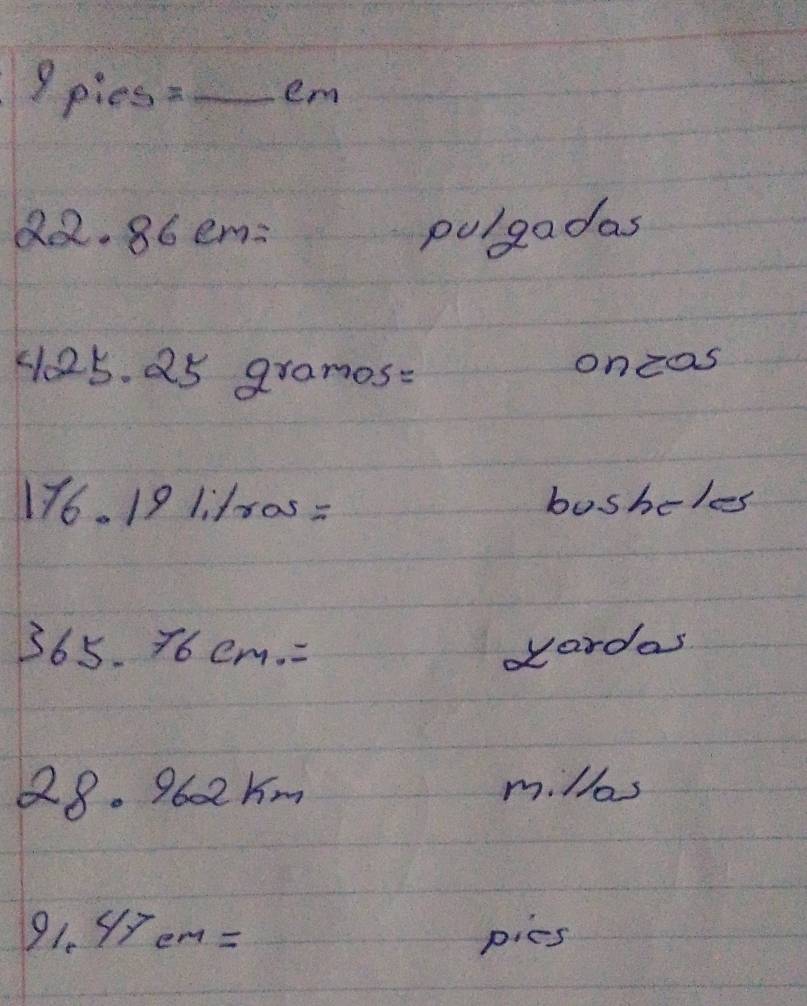 9 pies = ___ cm
22.86 cm = pulgadas
425.25 gramos = onzas
176.19 litros = busheles
365.76 cm. = yardas
28.962 Km millas
91.47 cm = pies